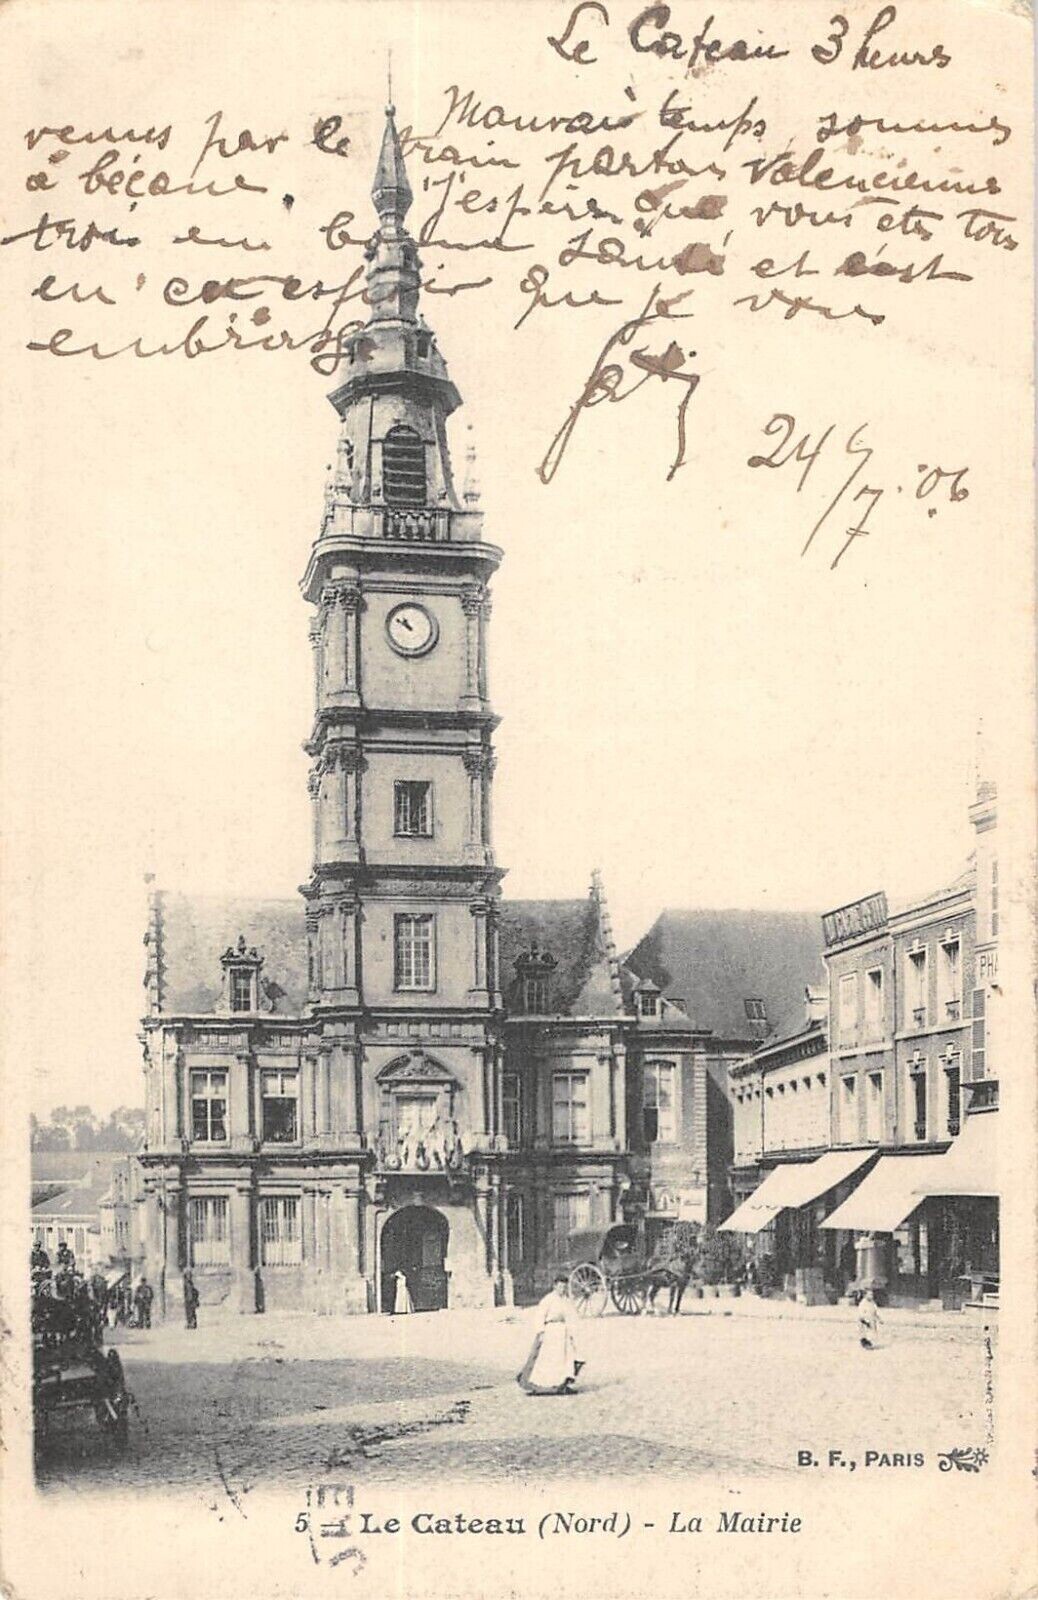 Le Cateau 3 heures
Mauvais temps, sommes
venus par le train partons Valencienne
à bécane. J'espère que vous etes tous
trois en bonne santé et c'est
en cet espoir que je vous
embrasse
24/7.06
PHA
B. F., PARIS
5 - Le Cateau (Nord) - La Mairie